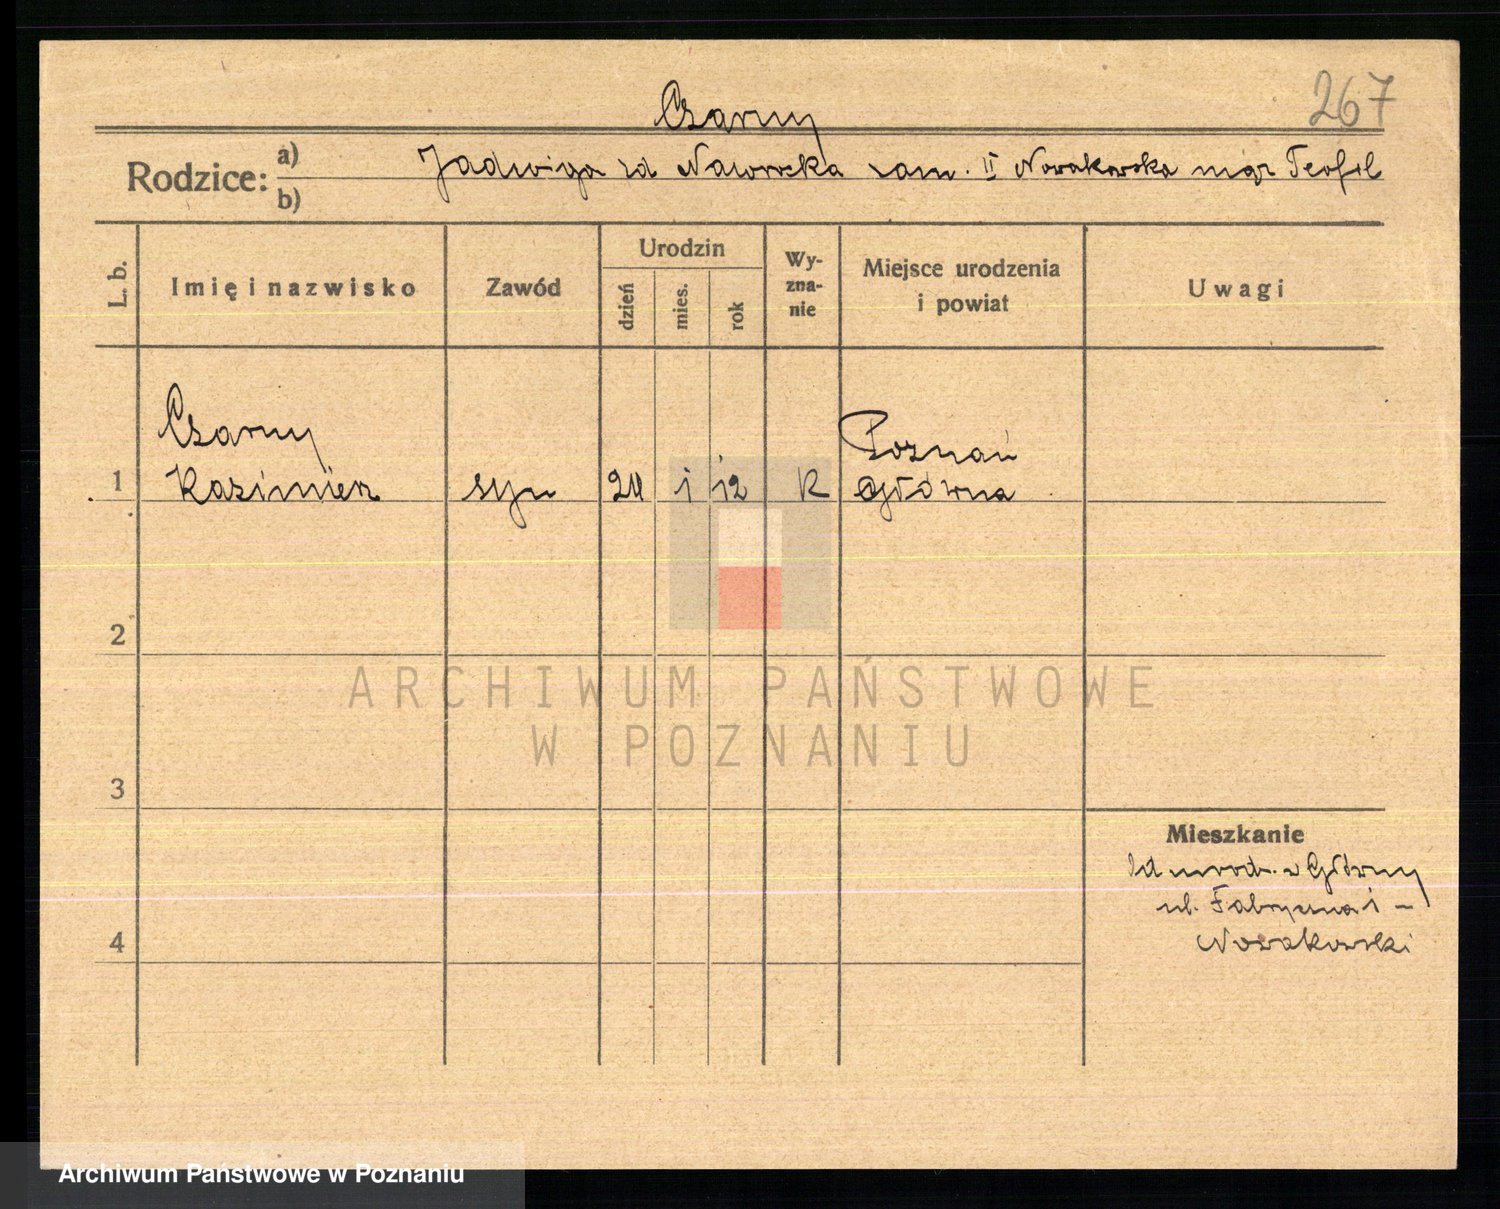 267
Czarny
Rodzice: a) Jadwiga zd Naworska zam. II Nowakowska mąż Teofil
b)
L. b.
Imię i nazwisko
Zawód
Urodzin
dzień
mies.
rok
Wy-
zna-
nie
Miejsce urodzenia
i powiat
Uwagi
Czarny
Poznań
1 Kazimierz syn 1 12 K Główna
2
3
4
Mieszkanie
Od urodz. w Główny
ul. Fabryczna 1 -
Nowakowski
ARCHIWUM PAŃSTWOWE
W POZNANIU
Archiwum Państwowe w Poznaniu